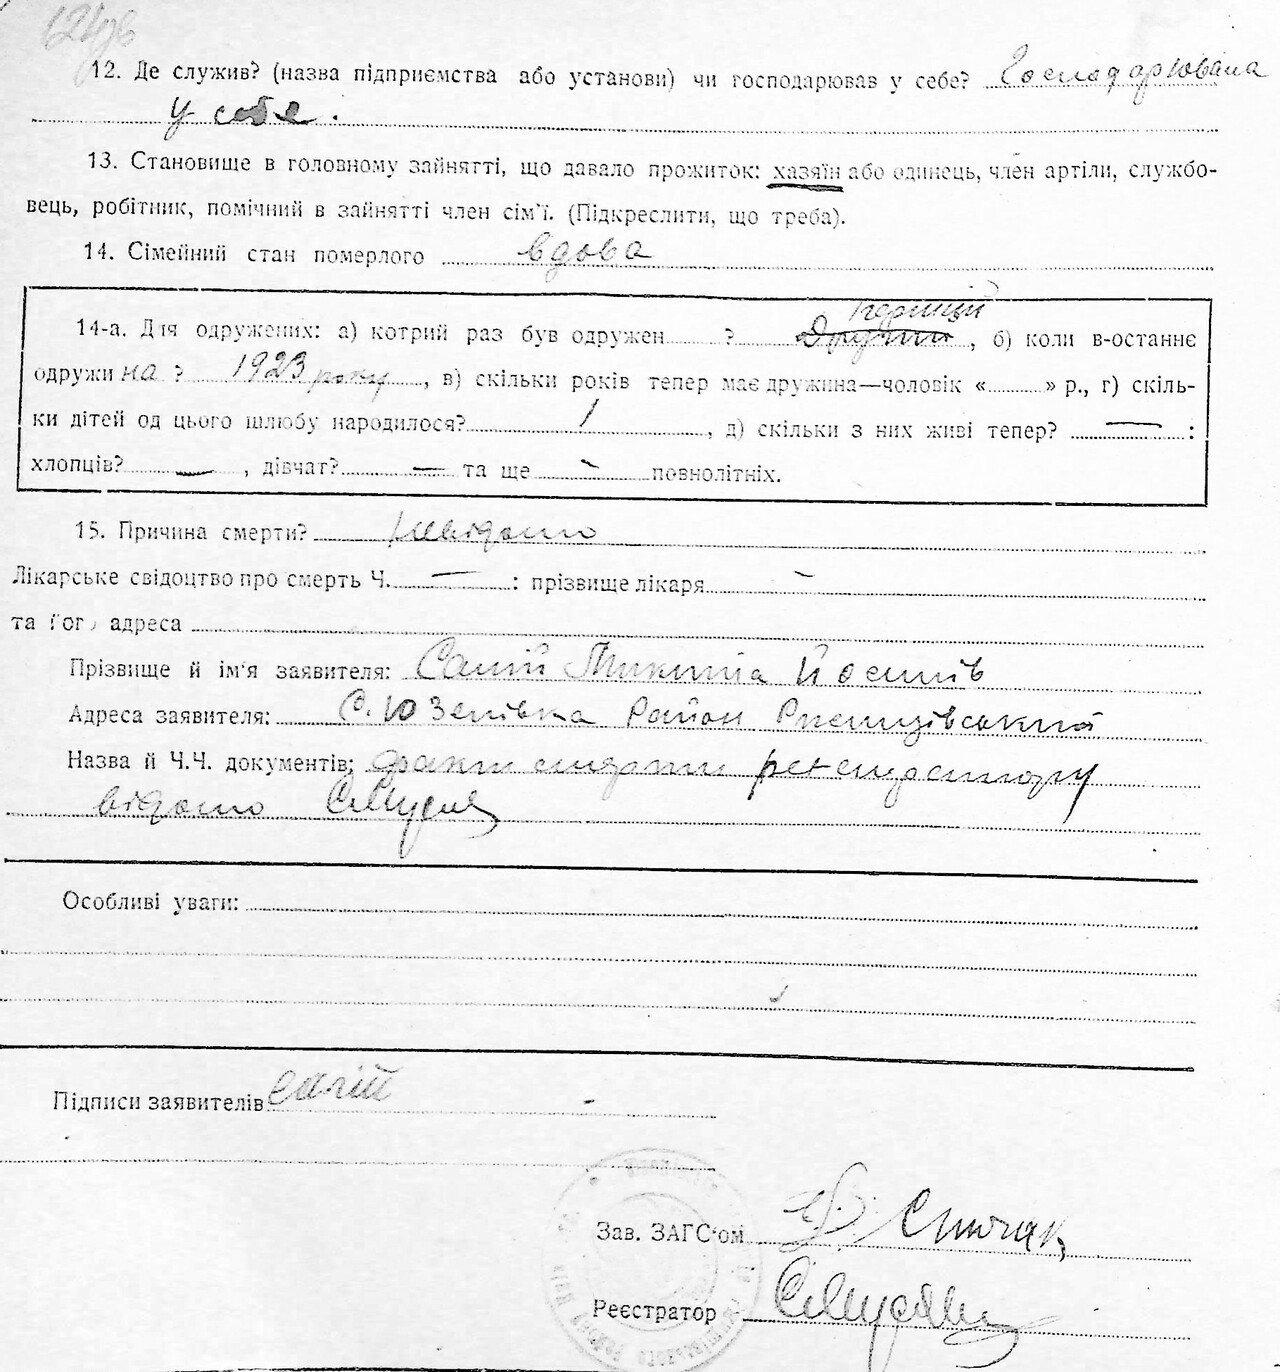 12. Де служив? (назва підприємства або установи) чи господарював у себе? Господарювала
у себе.
13. Становище в головному зайнятті, що давало прожиток: хазяїн або одинець, член артіли, службо-
вець, робітник, помічний в зайнятті член сім'ї. (Підкреслити, що треба).
14. Сімейний стан померлого вдова
14-а. Для одружених: а) котрий раз був одружен ? Другий перший, б) коли в-останнє
одружина ? 1923 року, в) скільки років тепер має дружина—чоловік « » р., г) скіль-
ки дітей од цього шлюбу народилося? 1, д) скільки з них живі тепер? — :
хлопців? —, дівчат? — та ще - повнолітніх.
15. Причина смерти? Невідомо
Лікарське свідоцтво про смерть Ч. — : прізвище лікаря -
та його адреса
Прізвище й ім'я заявителя: Сагій Микита Йосипів
Адреса заявителя: С. Юзепівка Район
Назва й Ч.Ч. документів: факт смерти регистратору
відомо
Особливі уваги:
Підписи заявителів Сагій
Зав. ЗАГС'ом Спичак
Реєстратор